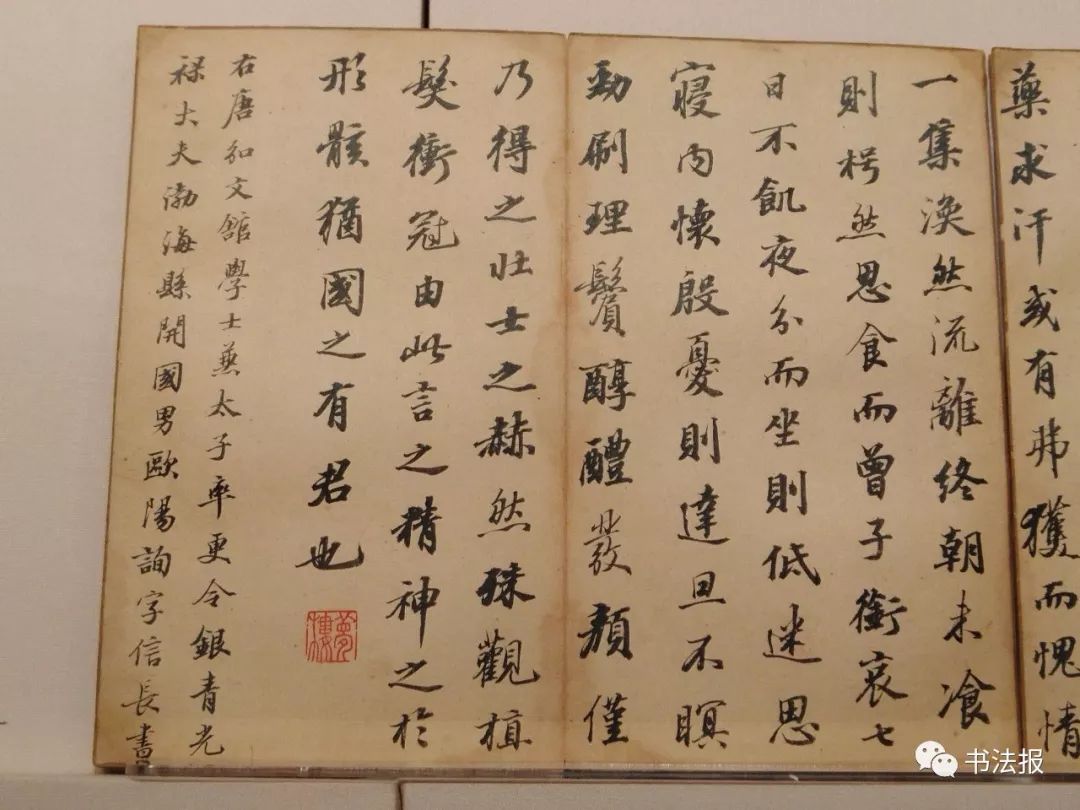 藥求汗或有弗獲而愧情
一集渙然流離終朝未飡
則枵然思食而曾子銜哀七
日不飢夜分而坐則低迷思
寝内懷殷憂則達旦不瞑
勁刷理鬢醇醴發顔僅
乃得之壯士之赫然殊觀植
髮衝冠由此言之精神之於
形骸猶國之有君也
夢樓
右唐知文館學士兼太子率更令銀青光
祿大夫渤海縣開國男歐陽詢字信長書
书法报